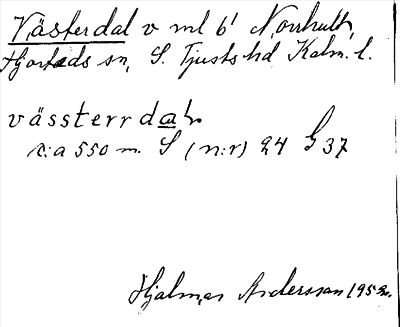 Västerdal v ml 6' Norrhult,
Hjorteds sn, S. Tjusts hd Kalm. l.
vässterrdal
c:a 550 m. S (n:r) 24 G 37
Hjalmar Andersson 1952.